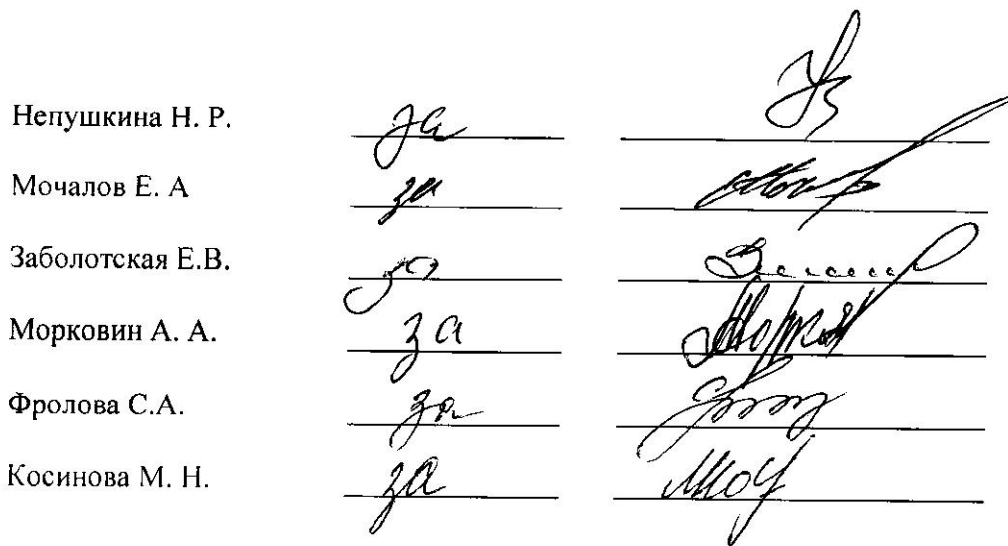 Непушкина Н. Р. за
Мочалов Е. А за
Заболотская Е.В. за
Морковин А. А. за
Фролова С.А. за
Косинова М. Н. за